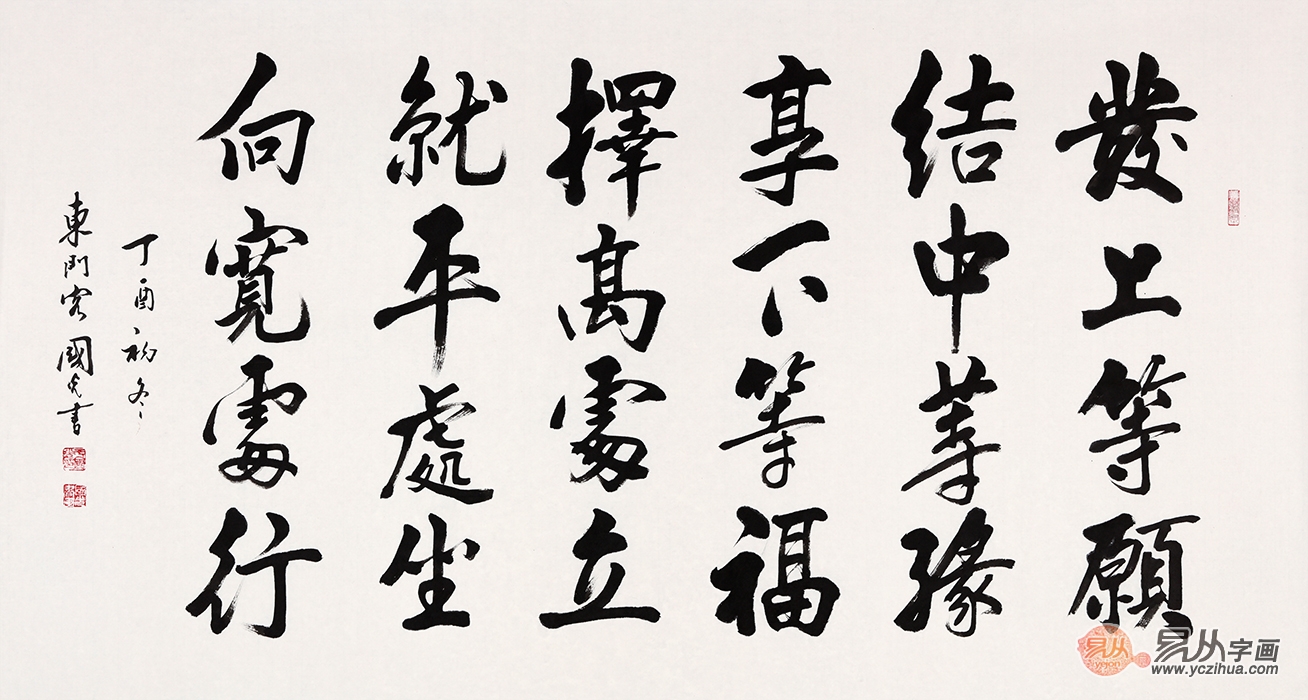 發上等願
結中等緣
享下等福
擇高處立
就平處坐
向寬處行
丁酉初冬
東門客國光書
易从
yejon
易从字画
www.yczihua.com